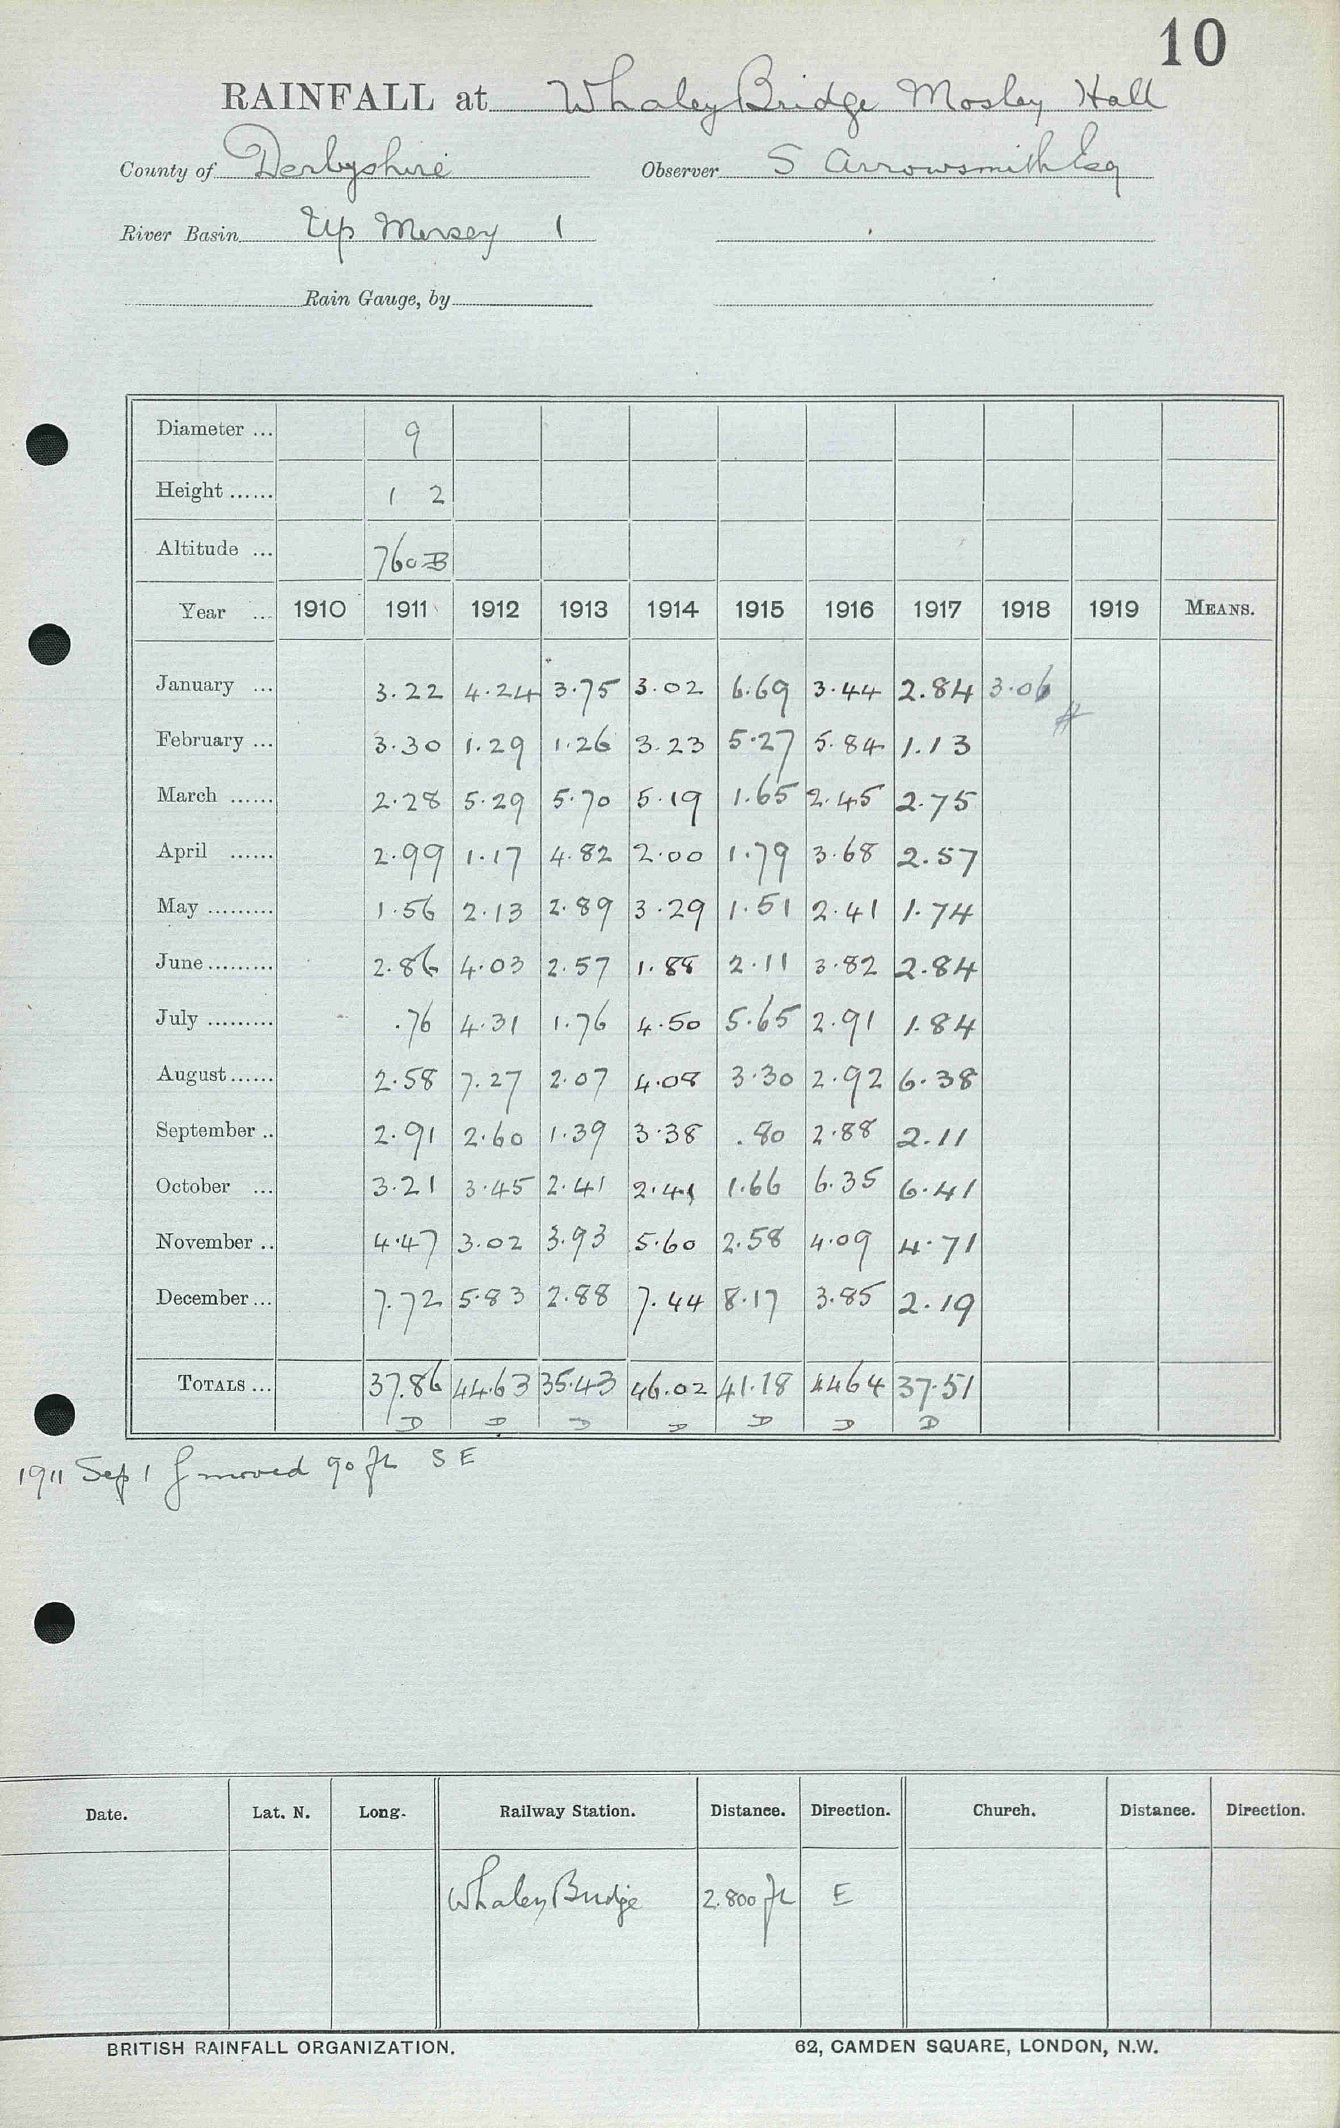 10
RAINFALL at Whaley Bridge Mosley Hall
County of Derbyshire Observer S Arrowsmith Esq
River Basin Up Mersey 1
Rain Gauge, by
Diameter ... 9
Height ...... 1 2
Altitude ... 760 B
Year ... 1910 1911 1912 1913 1914 1915 1916 1917 1918 1919 MEANS.
January ... 3.22 4.24 3.75 3.02 6.69 3.44 2.84 3.06
February ... 3.30 1.29 1.26 3.23 5.27 5.84 1.13
March ...... 2.28 5.29 5.70 5.19 1.65 2.45 2.75
April ...... 2.99 1.17 4.82 2.00 1.79 3.68 2.57
May ......... 1.56 2.13 2.89 3.29 1.51 2.41 1.74
June ......... 2.86 4.03 2.57 1.88 2.11 3.82 2.84
July ......... .76 4.31 1.76 4.50 5.65 2.91 1.84
August ...... 2.58 7.27 2.07 4.08 3.30 2.92 6.38
September .. 2.91 2.60 1.39 3.38 .80 2.88 2.11
October ... 3.21 3.45 2.41 2.41 1.66 6.35 6.41
November .. 4.47 3.02 3.93 5.60 2.58 4.09 4.71
December ... 7.72 5.83 2.88 7.44 8.17 3.85 2.19
TOTALS ... 37.86 44.63 35.43 46.02 41.18 4464 37.51
D D D D D D D
1911 Sep 1 G moved 90 ft S E
Date. Lat. N. Long. Railway Station. Distance. Direction. Church. Distance. Direction.
Whaley Bridge 2.800 ft E
BRITISH RAINFALL ORGANIZATION. 62, CAMDEN SQUARE, LONDON, N.W.